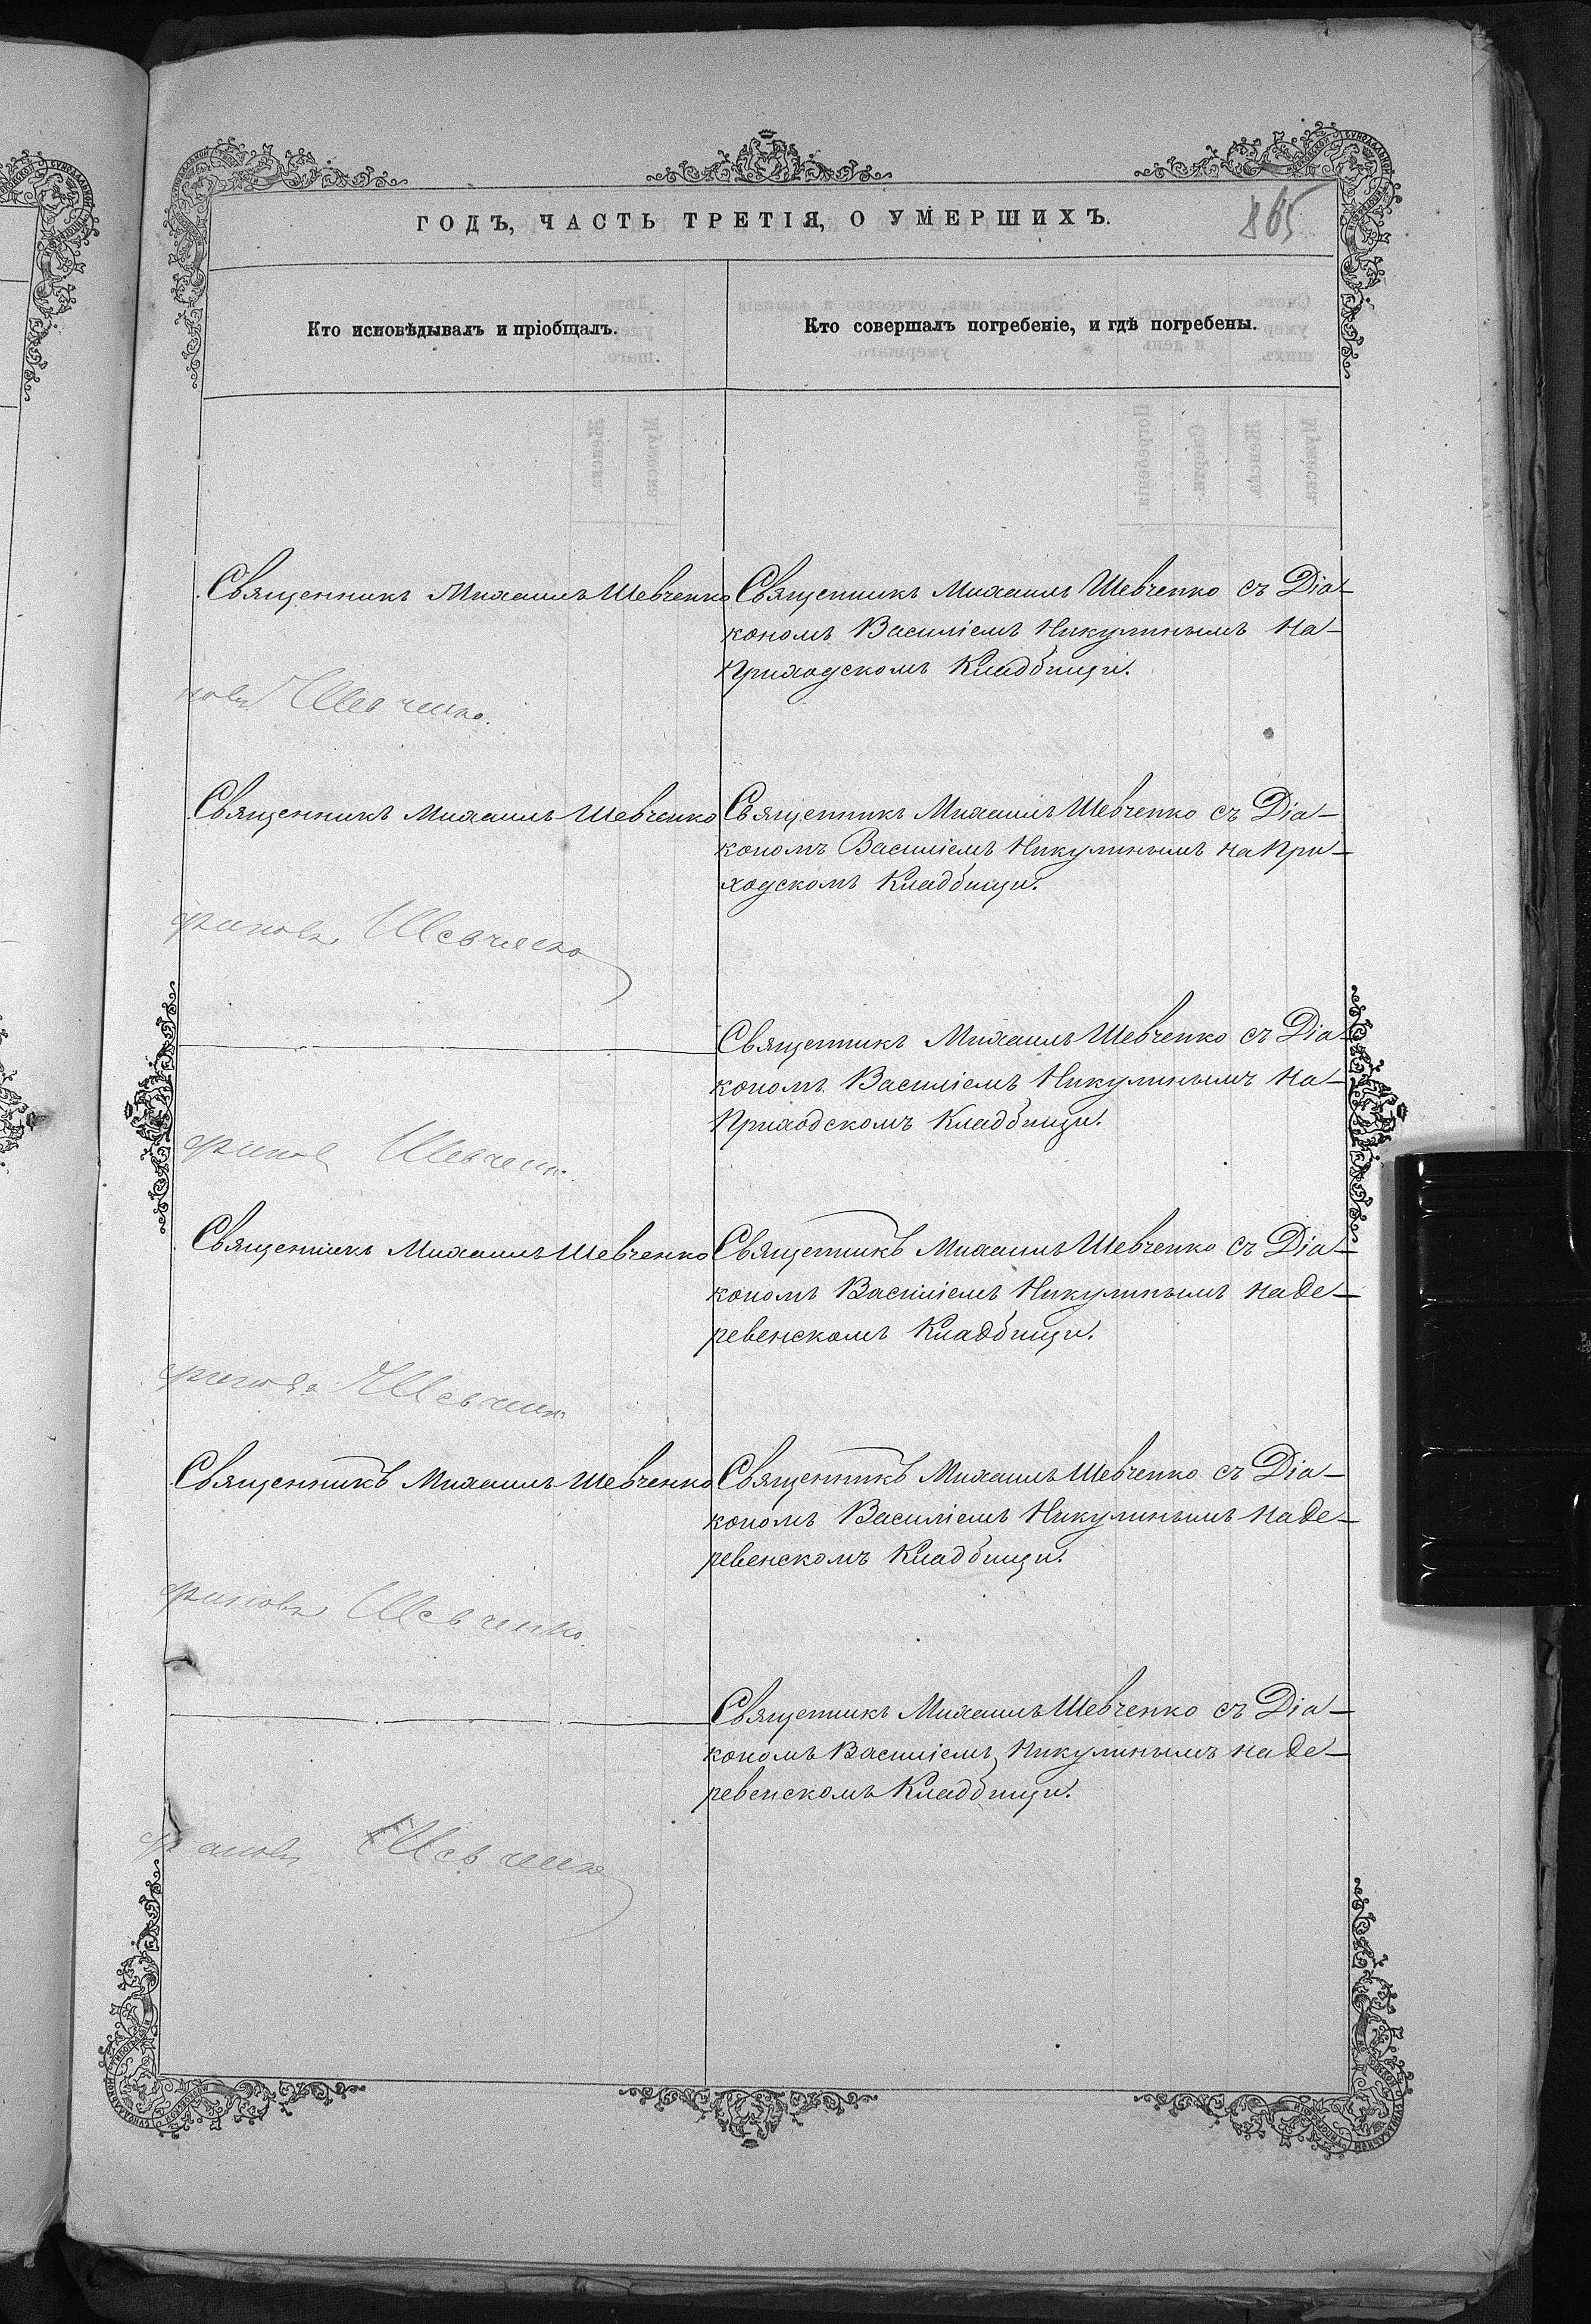 ГОДЪ, ЧАСТЬ ТРЕТІЯ, О УМЕРШИХЪ.
865
Кто исповѣдывалъ и пріобщалъ.
Кто совершалъ погребеніе, и гдѣ погребены.
Священникъ Михаилъ Шевченко
Священникъ Михаилъ Шевченко съ Діа-
кономъ Василіемъ Никулинымъ на-
Приходскомъ Кладбищи.
Шевченко.
Священникъ Михаилъ Шевченко
Священникъ Михаилъ Шевченко съ Діа-
кономъ Василіемъ Никулинымъ на При-
ходскомъ Кладбищи.
Шевченко
Священникъ Михаилъ Шевченко съ Діа-
кономъ Василіемъ Никулинымъ на-
Приходскомъ Кладбищи.
Шевченко
Священникъ Михаилъ Шевченко
Священникъ Михаилъ Шевченко съ Діа-
кономъ Василіемъ Никулинымъ на де-
ревенскомъ Кладбищи.
Шевченко
Священникъ Михаилъ Шевченко
Священникъ Михаилъ Шевченко съ Діа-
кономъ Василіемъ Никулинымъ на де-
ревенскомъ Кладбищи.
Шевченко.
Священникъ Михаилъ Шевченко съ Діа-
кономъ Василіемъ Никулинымъ на де-
ревенскомъ Кладбищи.
Шевченко